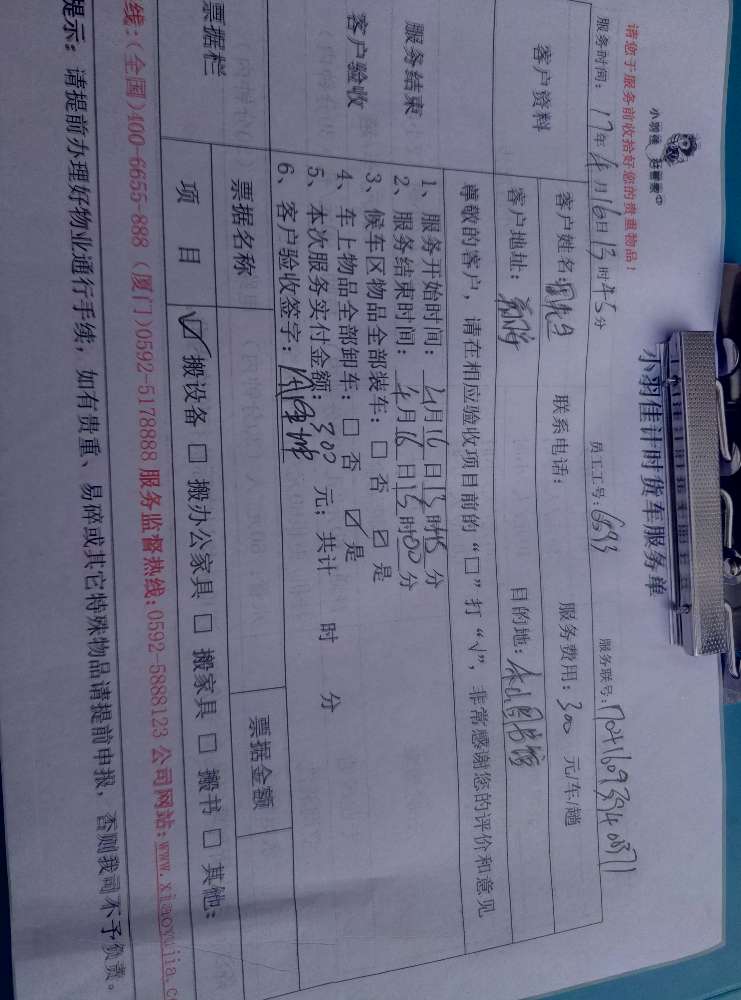 小羽佳 好管家
小羽佳计时货车服务单
请您于服务前收拾好您的贵重物品!
服务时间: 17年4月16日13时45分 员工工号: 6693 服务联号:
客户资料
客户姓名: 周先生 联系电话: 服务费用: 300 元/车/趟
客户地址: 前埔 目的地: 图书馆
尊敬的客户，请在相应验收项目前的“□”打“√”，非常感谢您的评价和意见
服务结束
客户验收
1、服务开始时间: 4月16日13时45分
2、服务结束时间: 4月16日15时00分
3、候车区物品全部装车: □ 否 ☑ 是
4、车上物品全部卸车: □ 否 ☑ 是
5、本次服务实付金额: 300 元; 共计 时 分
6、客户验收签字:
票据栏 票据名称 票据金额
项 目 ☑ 搬设备 □ 搬办公家具 □ 搬家具 □ 搬书 □ 其他:
线:(全国)400-6655-888 (厦门)0592-5178888 服务监督热线:0592-5888123 公司网站:www.xiaoyujia.c
提示: 请提前办理好物业通行手续，如有贵重、易碎或其它特殊物品请提前申报，否则我司不予负责。